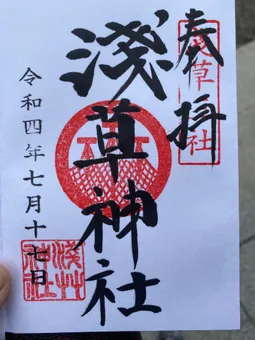 奉拝
浅草神社
令和四年七月十七日
浅草社
浅草神社